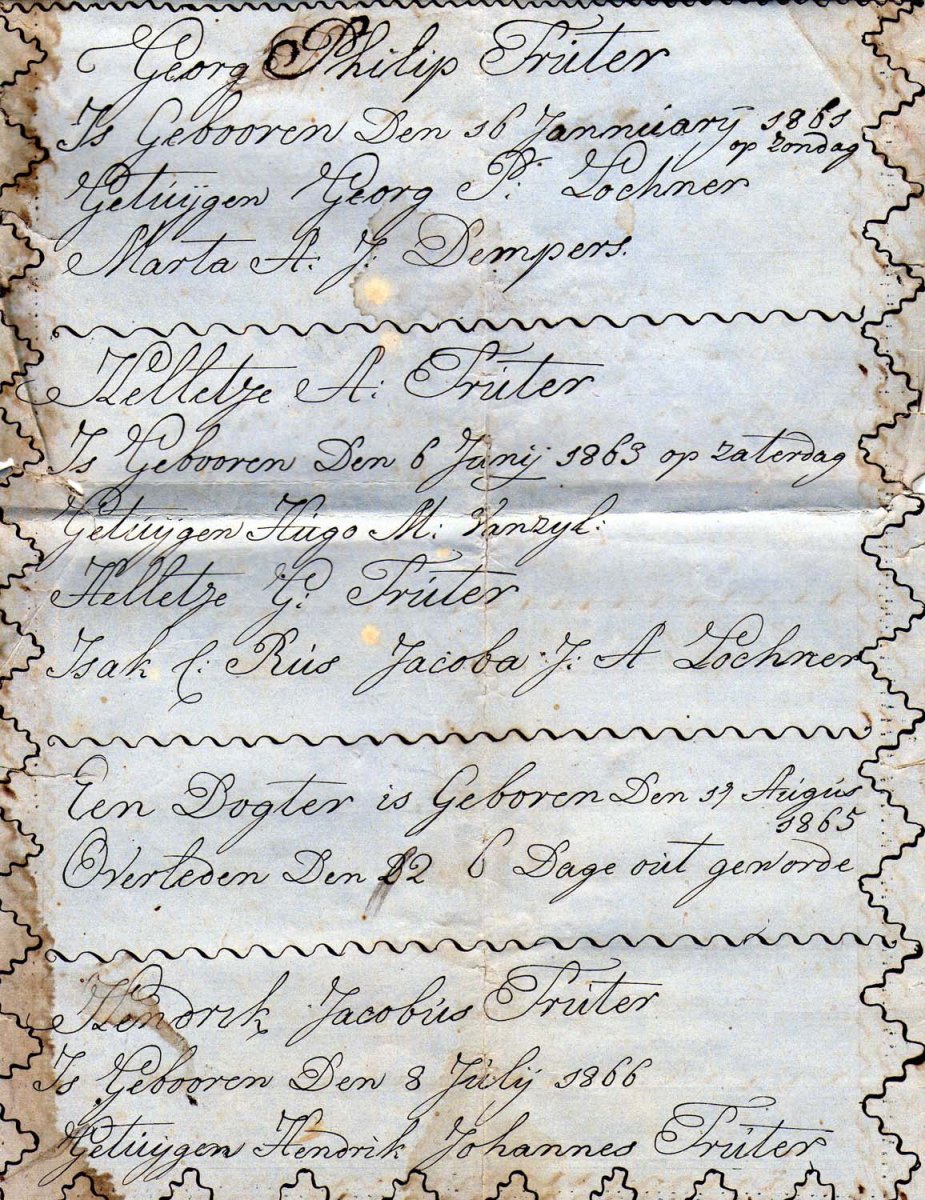 Georg Philip Trúter
Is Gebooren Den 16 Jannúarÿ 1861
op Zondag
Getúÿgen Georg P: Lochner
Marta A: J: Dempers.
Helletze A: Trúter
Is Gebooren Den 6 Junÿ 1863 op zaterdag
Getúÿgen Húgo M: Vanzyl:
Helletze G: Trúter
Isak C: Rús Jacoba J: A Lochner
Een Dogter is Geboren Den 17 Aúgús
1865
Overleden Den 22 6 Dage oút geworde
Hendrik Jacobús Trúter
Is Gebooren Den 8 Júlÿ 1866
Getúÿgen Hendrik Johannes Trúter